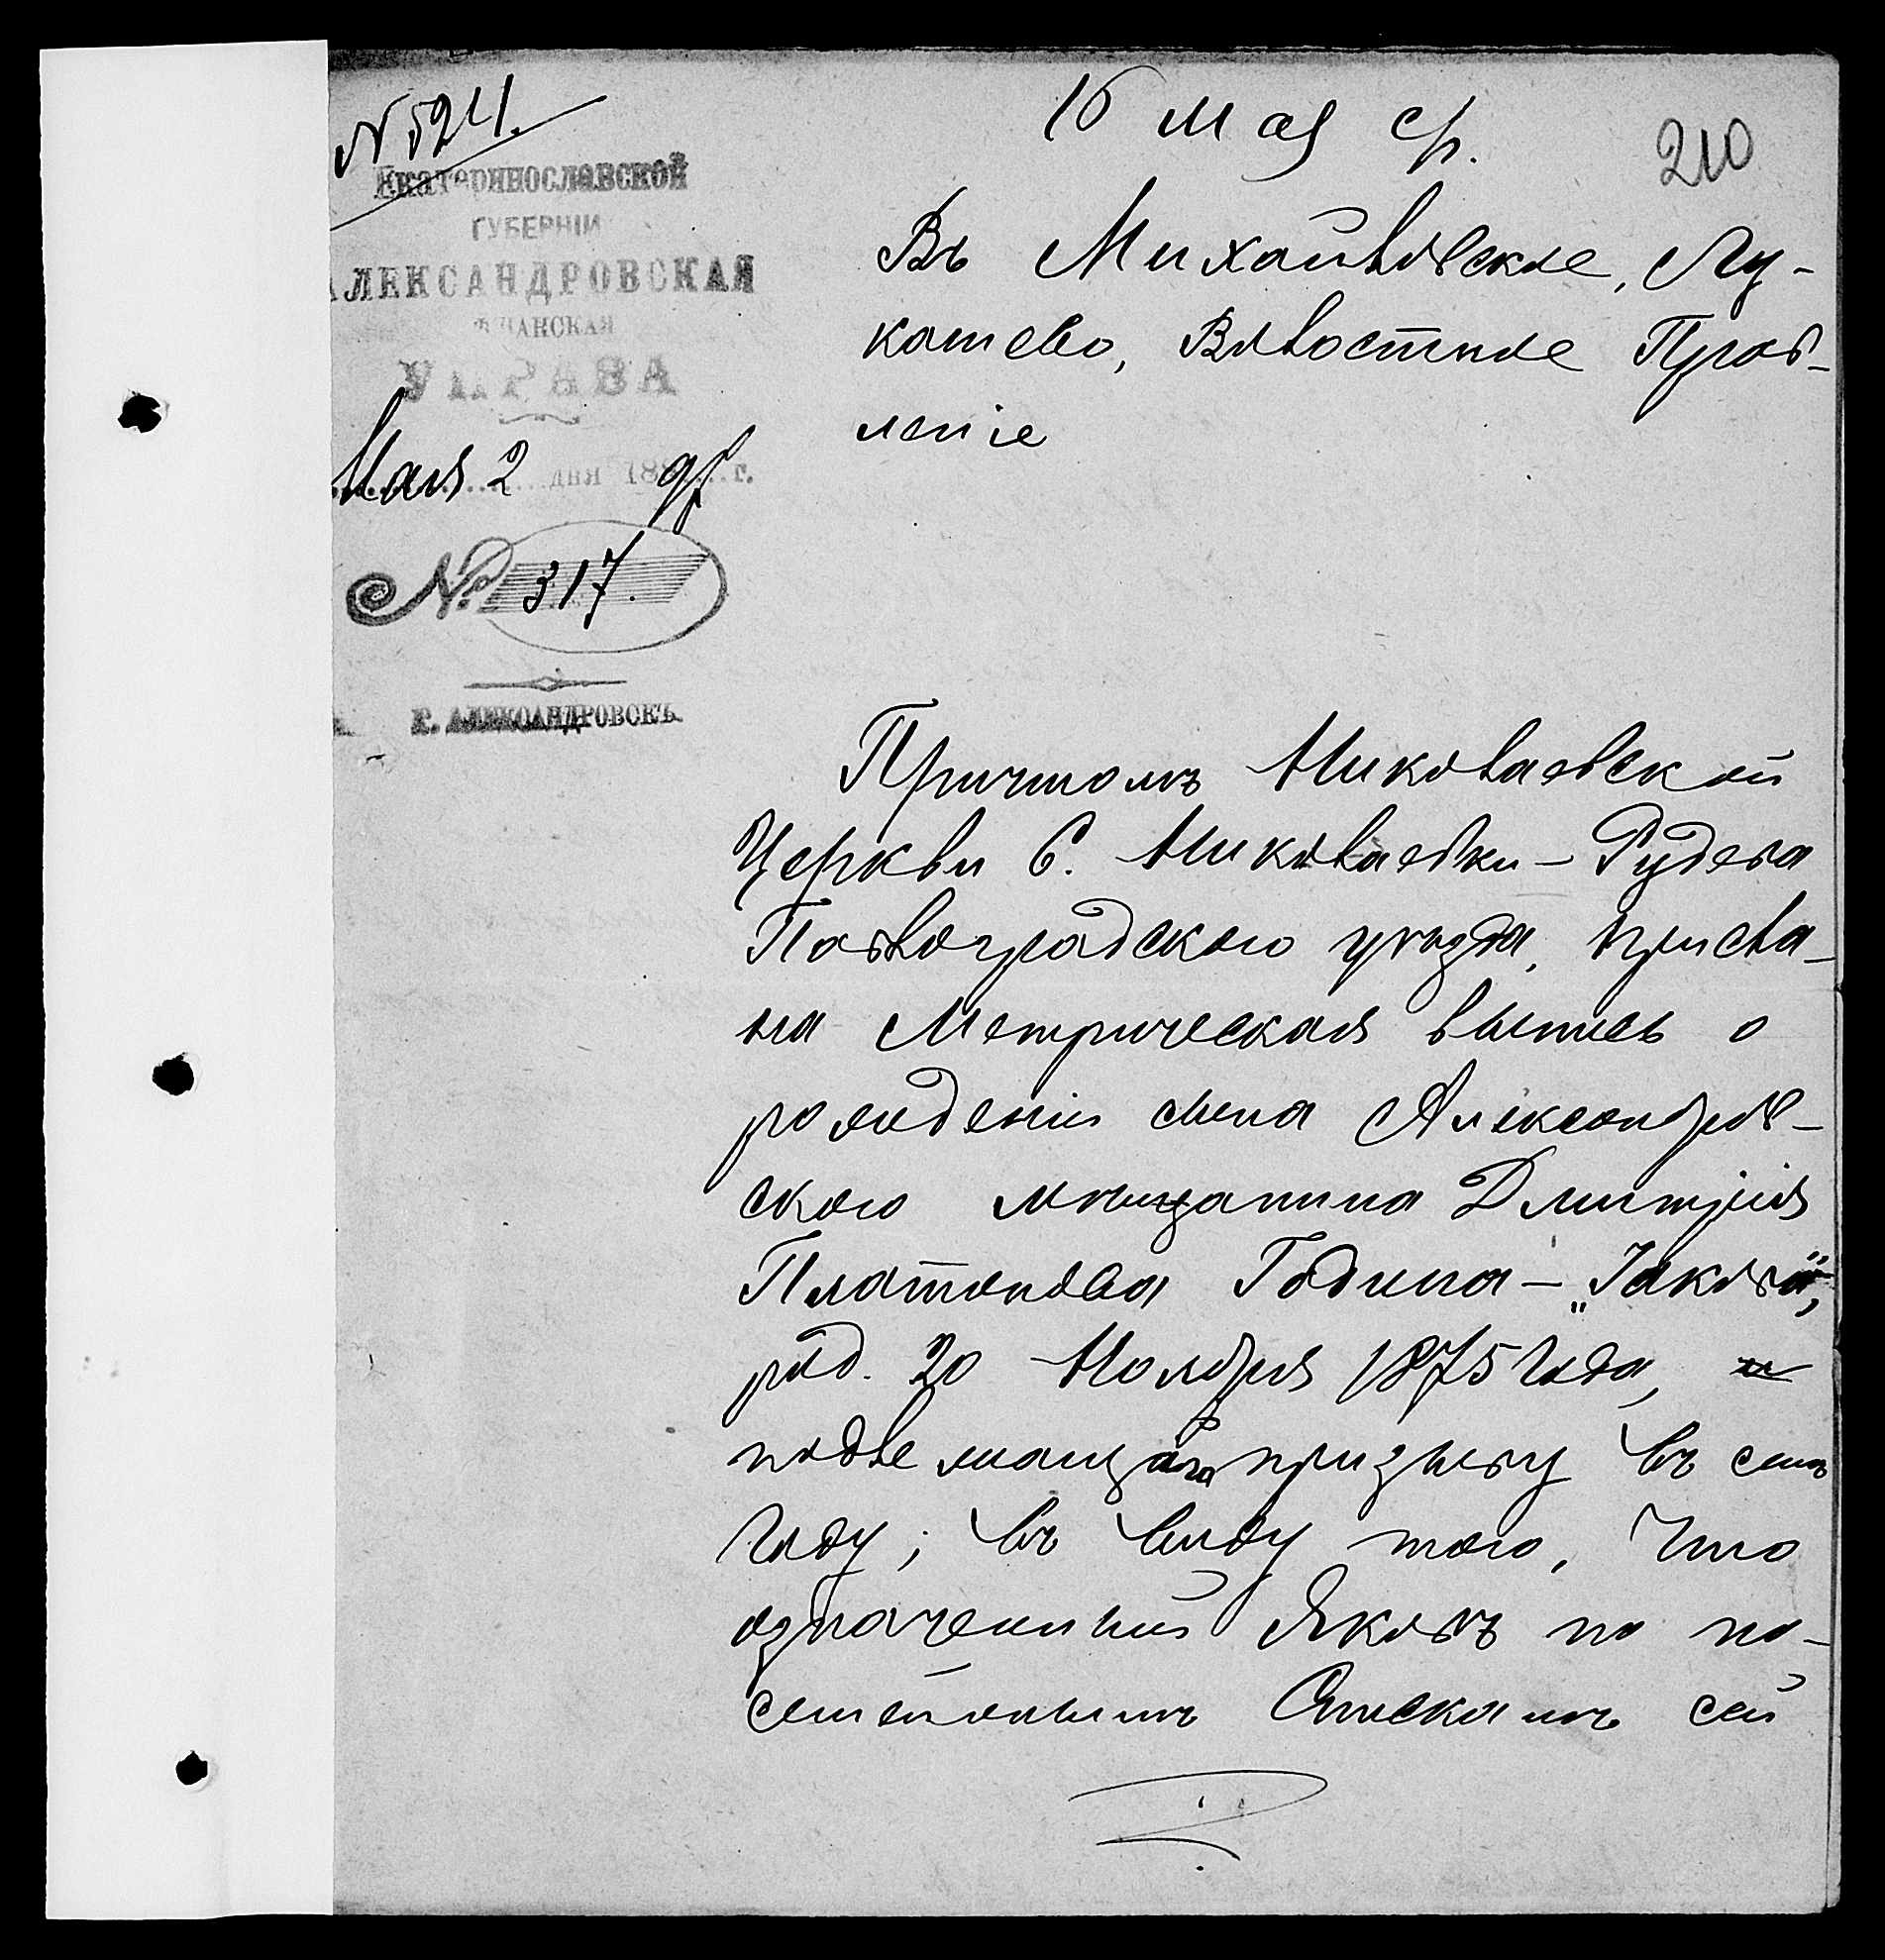 N 524.
16 Мая ср.
210
Екатеринославской
ГУБЕРНІИ
АЛЕКСАНДРОВСКАЯ
МѢЩАНСКАЯ
УПРАВА
Мая 2 дня 189 г.
№ 317.
Г. АЛЕКСАНДРОВСКЪ.
Въ Михайловское, Лу-
кашево, Волостное Прав-
леніе
Причтомъ Николаевской
Церкви С. Николаевки-Рудева
Павлоградского уѣзда, присла-
на Метрическая выпись о
рожденіи сына Александров-
ского мѣщанина Дмитрія
Платонова Година - „Іакова",
род. 20 Ноября 1875 года,
подлежащаго призыву въ семъ
году; въ виду того, что
означенный Яковъ по по-
семейнымъ Спискамъ сей